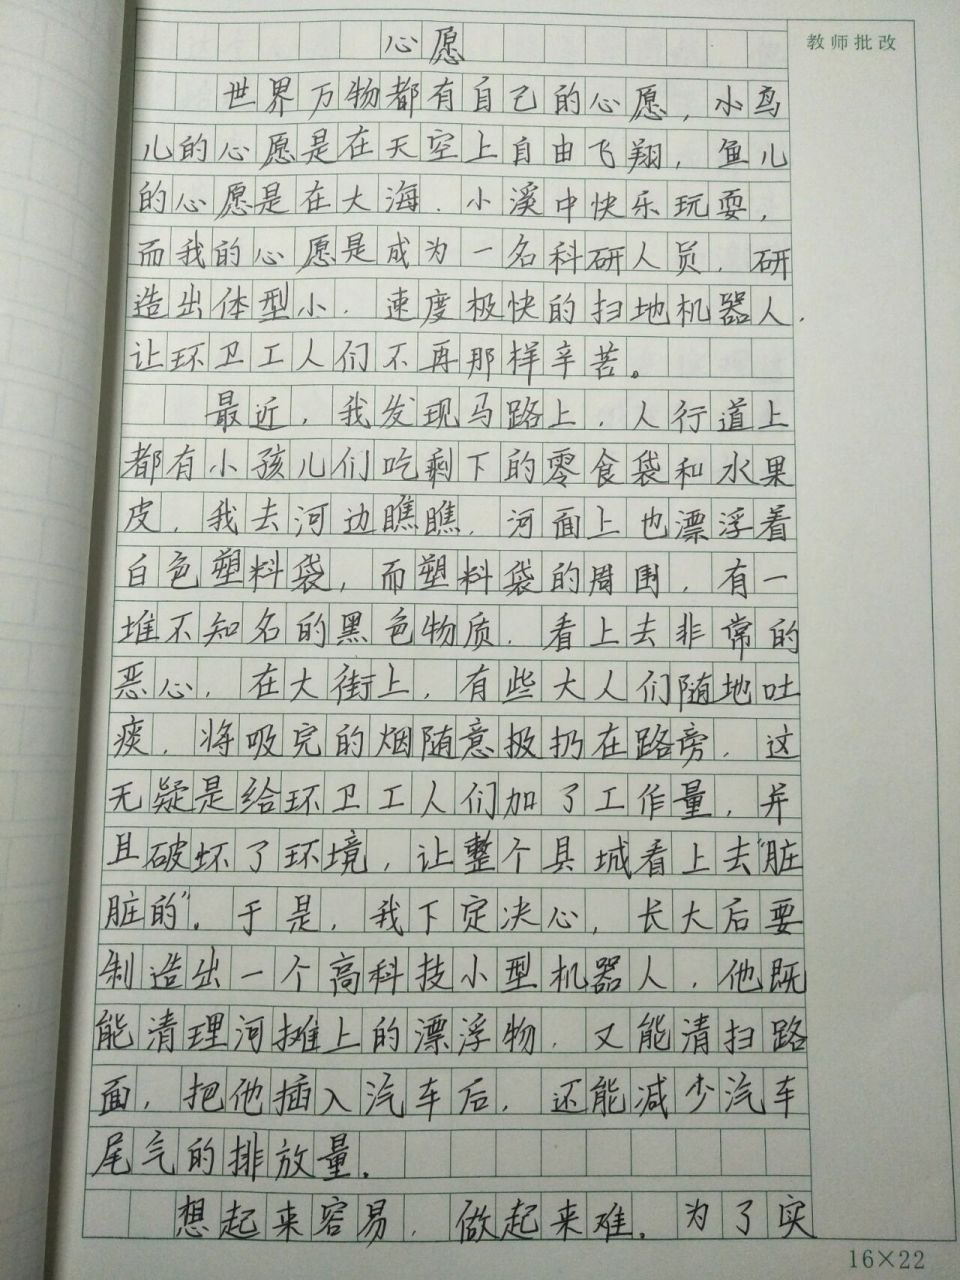 心愿
教师批改
世界万物都有自己的心愿，小鸟
儿的心愿是在天空上自由飞翔，鱼儿
的心愿是在大海、小溪中快乐玩耍，
而我的心愿是成为一名科研人员，研
造出体型小、速度极快的扫地机器人，
让环卫工人们不再那样辛苦。
最近，我发现马路上，人行道上
都有小孩儿们吃剩下的零食袋和水果
皮，我去河边瞧瞧，河面上也漂浮着
白色塑料袋，而塑料袋的周围，有一
堆不知名的黑色物质，看上去非常的
恶心，在大街上，有些大人们随地吐
痰，将吸完的烟随意扱扔在路旁，这
无疑是给环卫工人们加了工作量，并
且破坏了环境，让整个县城看上去“脏
脏的”。于是，我下定决心，长大后要
制造出一个高科技小型机器人，他既
能清理河摊上的漂浮物，又能清扫路
面，把他插入汽车后，还能减少汽车
尾气的排放量。
想起来容易，做起来难。为了实
16×22